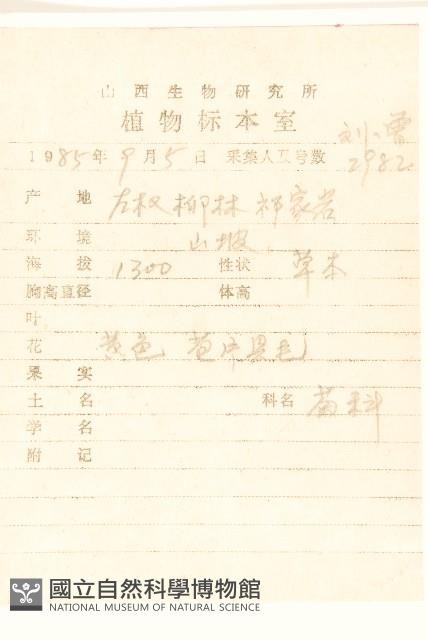 山西生物研究所
植物标本室
1985年9月5日 采集人及号数 刘小 2982
产地 左权柳林 祁家岩
环境 山坡
海拔 1300 性状 草本
胸高直径 体高
叶
花 黄色 苞片黑毛
果实
土名 科名 菊科
学名
附记
國立自然科學博物館
NATIONAL MUSEUM OF NATURAL SCIENCE